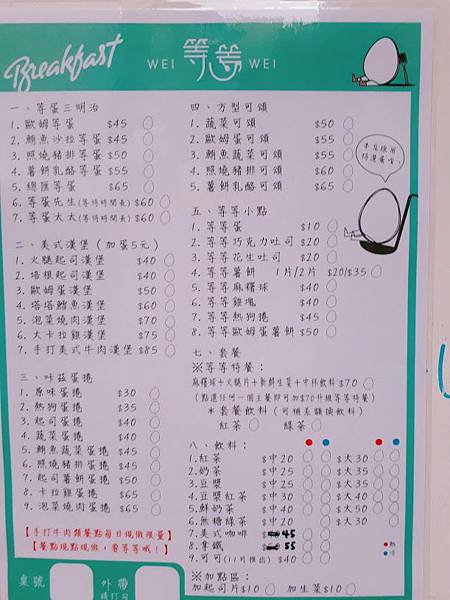 Breakfast
WEI 等等 WEI
一、等蛋三明治
1. 歐姆等蛋 $45
2. 鮪魚沙拉等蛋 $45
3. 照燒豬排等蛋 $50
4. 薯餅乳酪等蛋 $55
5. 總匯等蛋 $65
6. 等蛋先生(等待時間長) $60
7. 等蛋太太(等待時間長) $60
二、美式漢堡（加蛋5元）
1. 火腿起司漢堡 $40
2. 培根起司漢堡 $40
3. 歐姆蛋漢堡 $50
4. 塔塔鱈魚漢堡 $60
5. 泡菜燒肉漢堡 $70
6. 大卡拉雞漢堡 $75
7. 手打美式牛肉漢堡 $85
三、咔茲蛋捲
1. 原味蛋捲 $30
2. 熱狗蛋捲 $35
3. 起司蛋捲 $40
4. 蔬菜蛋捲 $40
5. 鮪魚蔬菜蛋捲 $45
6. 照燒豬排蛋捲 $45
7. 起司薯餅蛋捲 $50
8. 卡拉雞蛋捲 $65
9. 泡菜燒肉蛋捲 $65
【手打牛肉類餐點每日現做限量】
【餐點現點現做，要等等哦！】
桌號
外帶
請打勾
四、方型可頌
1. 蔬菜可頌 $50
2. 歐姆蛋可頌 $55
3. 鮪魚蔬菜可頌 $55
4. 照燒豬排可頌 $65
5. 薯餅乳酪可頌 $65
本店採用
特選蛋唷
五、等等小點
1. 等等蛋 $10
2. 等等巧克力吐司 $20
3. 等等花生吐司 $20
4. 等等薯餅 1片/2片 $20/$35
5. 等等麻糬球 $40
6. 等等雞塊 $40
7. 等等熱狗捲 $45
8. 等等歐姆蛋薯餅 $50
七、套餐
※等等特餐：
麻糬球+火腿片+新鮮生菜+中杯飲料 $70
(點選任何一個主餐即可加$70升級等等特餐)
＊套餐飲料（可補差額換飲料）
紅茶 綠茶
八、飲料：
1. 紅茶 $中20 $大30
2. 奶茶 $中25 $大35
3. 豆漿 $中25 $大35
4. 豆漿紅茶 $中30 $大40
5. 鮮奶茶 $中40 $大50
6. 無糖綠茶 $中20 $大30
7. 美式咖啡 $ 45
8. 拿鐵 $ 55
9. 可可(11月推出) $40
熱
冷
※加點區：
加起司片$10 加生菜$10